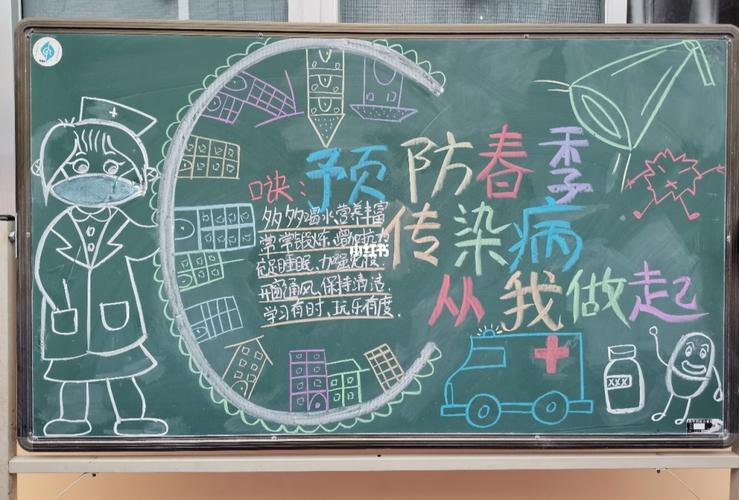 预防春季
传染病
从我做起
诀:
多多喝水,营养丰富
常常锻炼,增加抗力
睡眠
开窗通风,保持清洁
学习有时,玩乐有度.
小红书
XXX